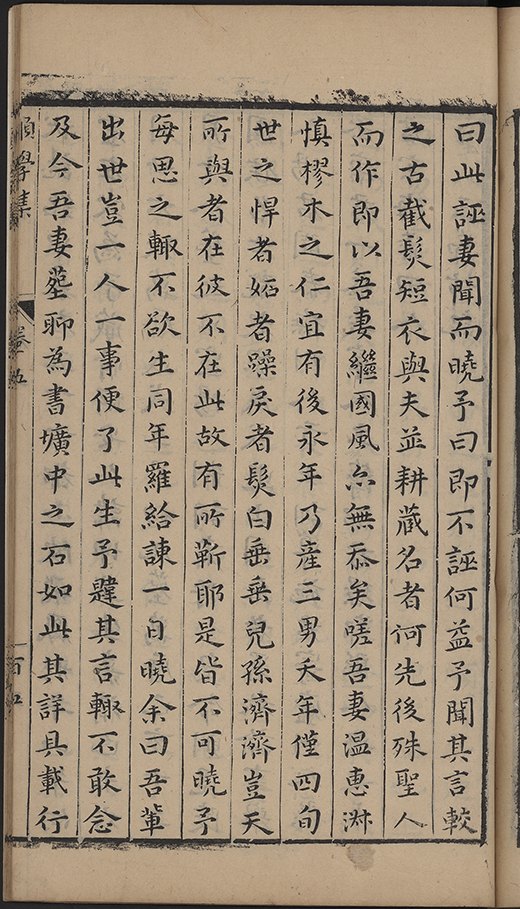 曰此誣妻聞而曉予曰即不誣何益予聞其言較
之古截髮短衣與夫並耕藏名者何先後殊聖人
而作即以吾妻繼國風尒無忝矣嗟吾妻温惠淋
慎樛木之仁宜有後永年乃產三男夭年僅四旬
世之悍者妬者躁戾者髮白垂垂兒孫濟濟豈天
所與者在彼不在此故有所靳耶是皆不可曉予
每思之輙不欲生同年羅給諫一日曉余曰吾輩
出世豈一人一事便了此生予韙其言輙不敢念
及今吾妻塟聊為書壙中之石如此其詳具載行
學集
卷五